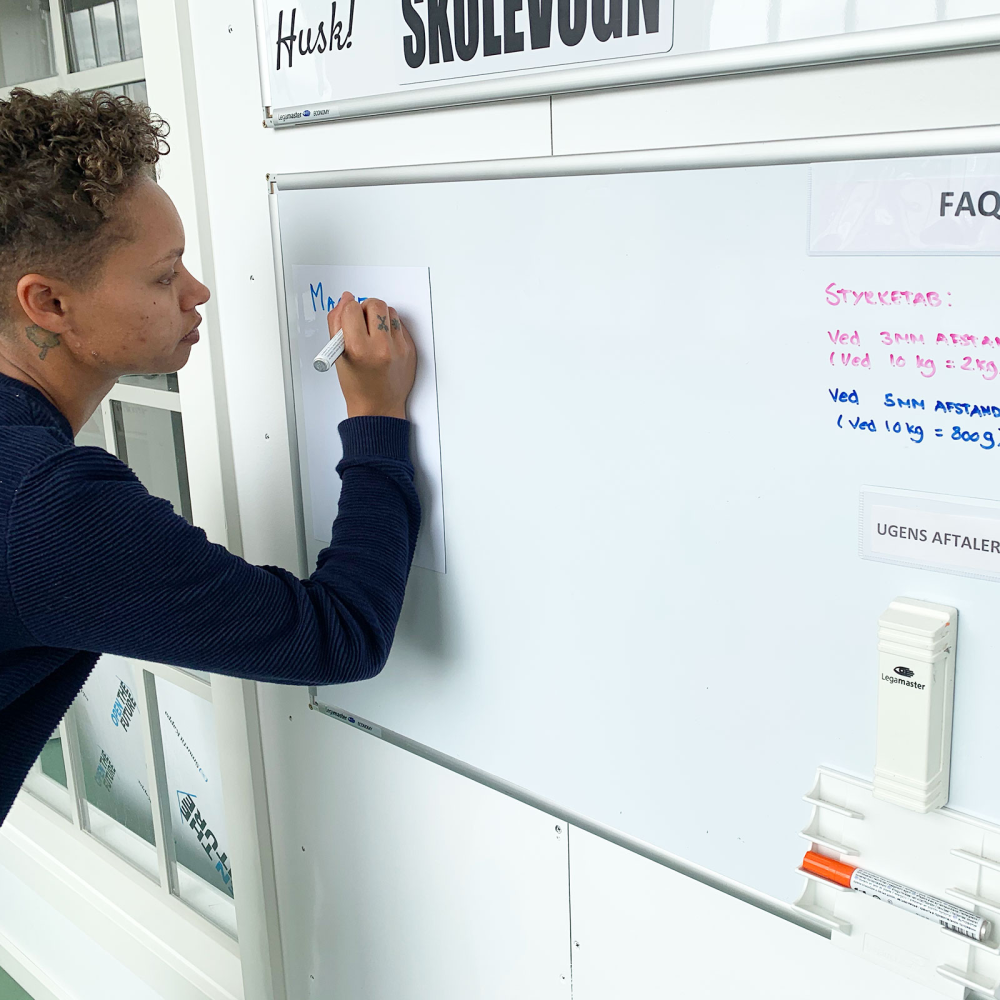 Husk!
SKOLEVOGN
Legamaster ECONOMY
FAQ
STYRKETAB:
Ved 3MM AFSTAN
(Ved 10 kg = 2 kg
Ved 5MM AFSTAND
(Ved 10 kg = 800g)
UGENS AFTALER
Legamaster
Legamaster ECONOMY
OPEN THE
FUTURE